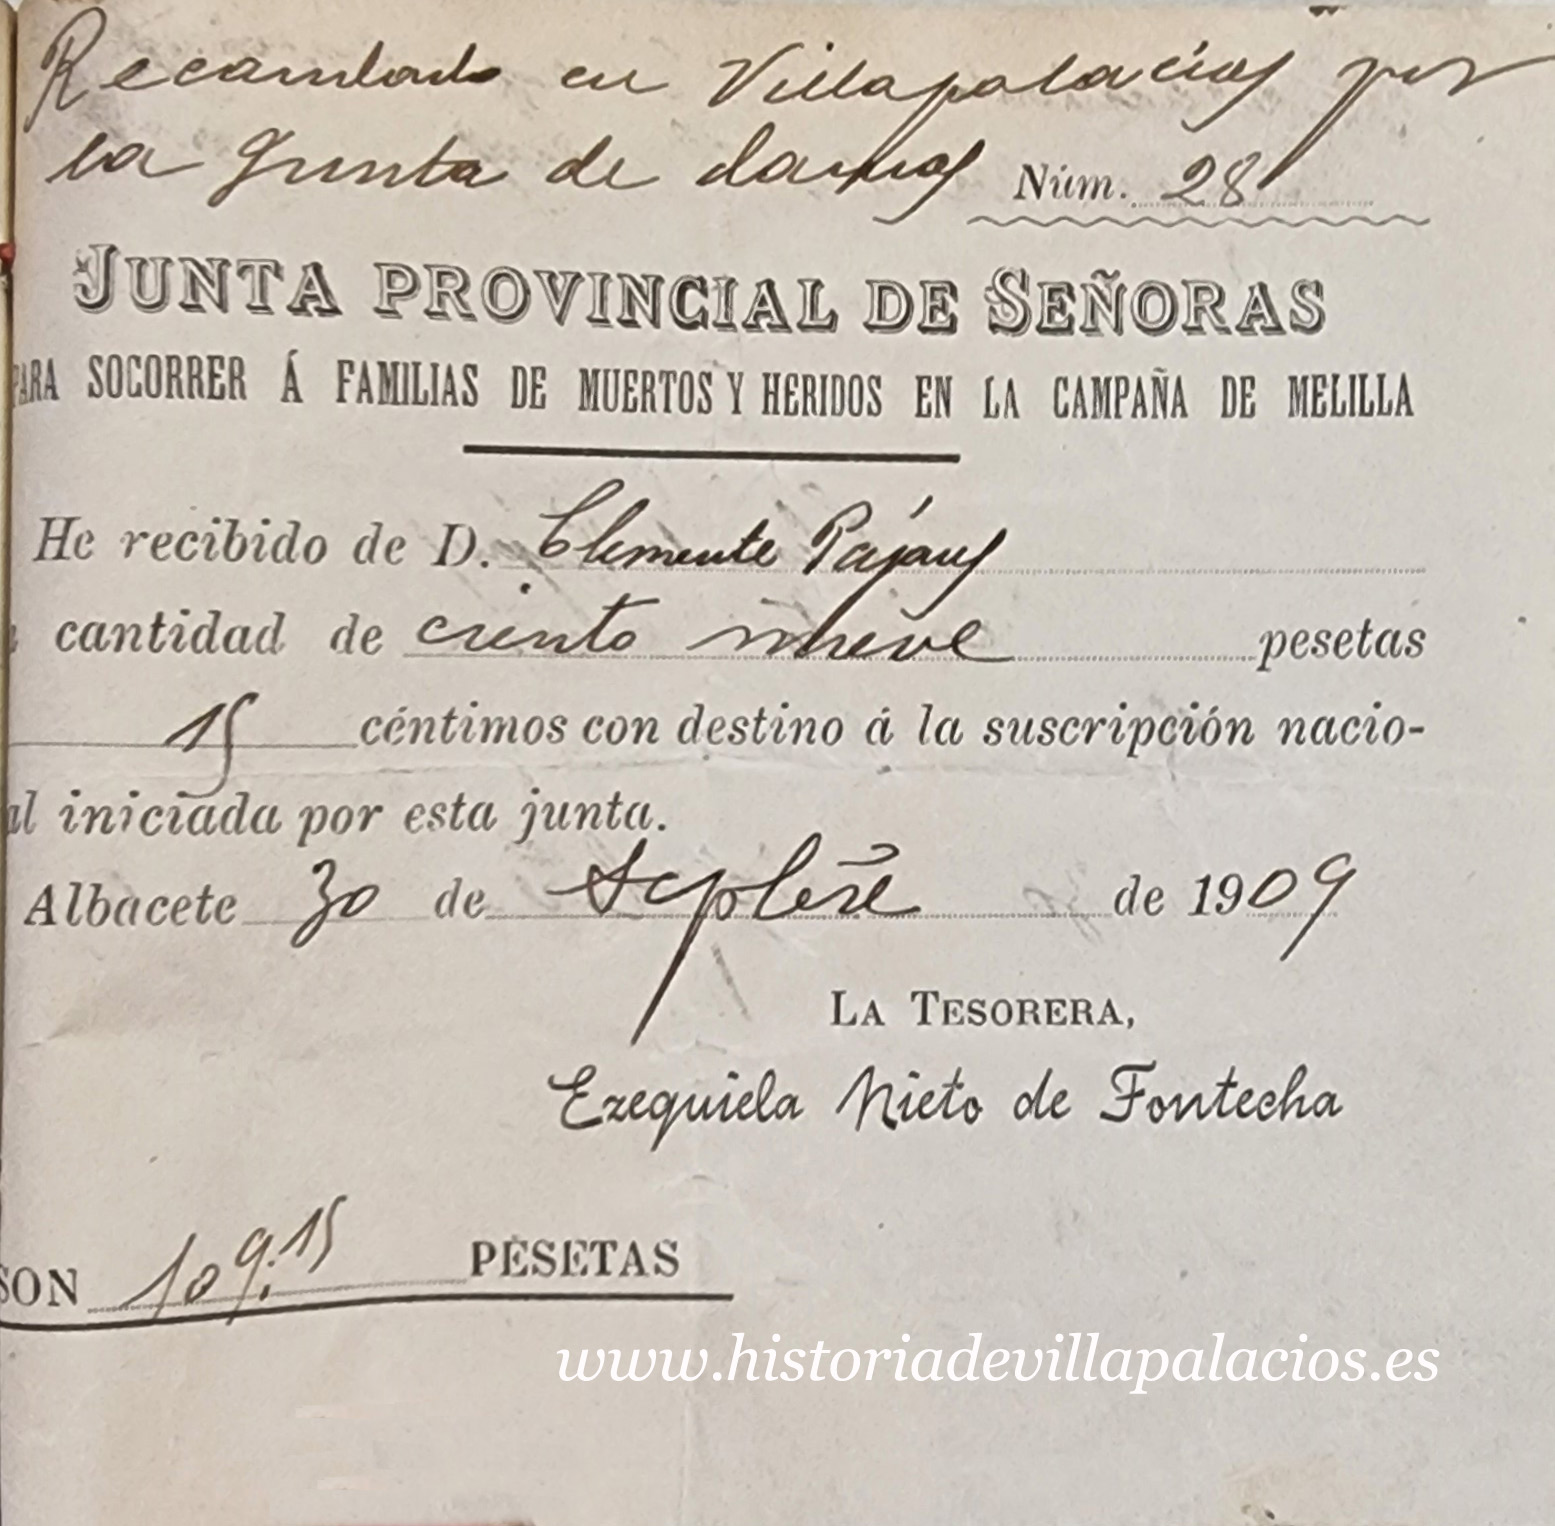 Recaudado en Villapalacios por
la Junta de damas Núm. 28
JUNTA PROVINCIAL DE SEÑORAS
PARA SOCORRER Á FAMILIAS DE MUERTOS Y HERIDOS EN LA CAMPAÑA DE MELILLA
He recibido de D. Clemente Pajares
cantidad de ciento nueve pesetas
15 céntimos con destino á la suscripción nacio-
al iniciada por esta junta.
Albacete 30 de Sepbre de 1909
LA TESORERA,
Ezequiela Nieto de Fontecha
SON 109.15 PESETAS
www.historiadevillapalacios.es